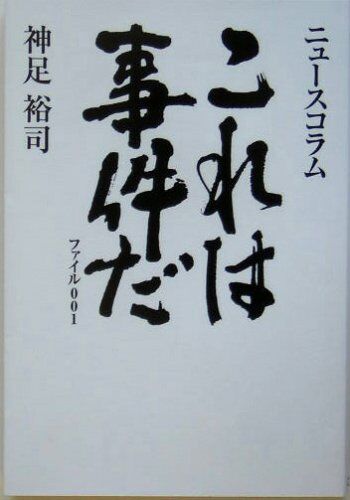 ニュースコラム
これは
事件だ
ファイル001
神足 裕司